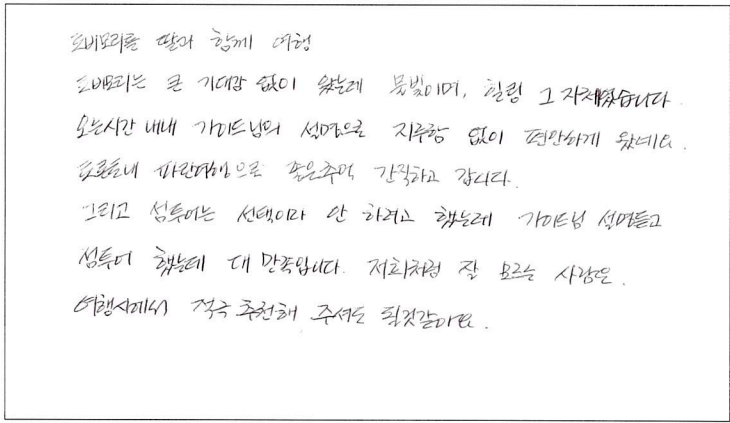 토버모리를 딸과 함께 여행
토버모리는 큰 기대감 없이 왔는데 물빛이며, 힐링 그 자체였습니다.
오는시간 내내 가이드님의 설명으로 지루함 없이 편안하게 왔네요.
토론토내 파란여행으로 좋은추억 간직하고 갑니다.
그리고 섬투어는 선택이라 안 하려고 했는데 가이드님 설명듣고
섬투어 했는데 대 만족입니다. 저희처럼 잘 모르는 사람은.
여행사에서 적극 추천해 주셔도 될것같아요.